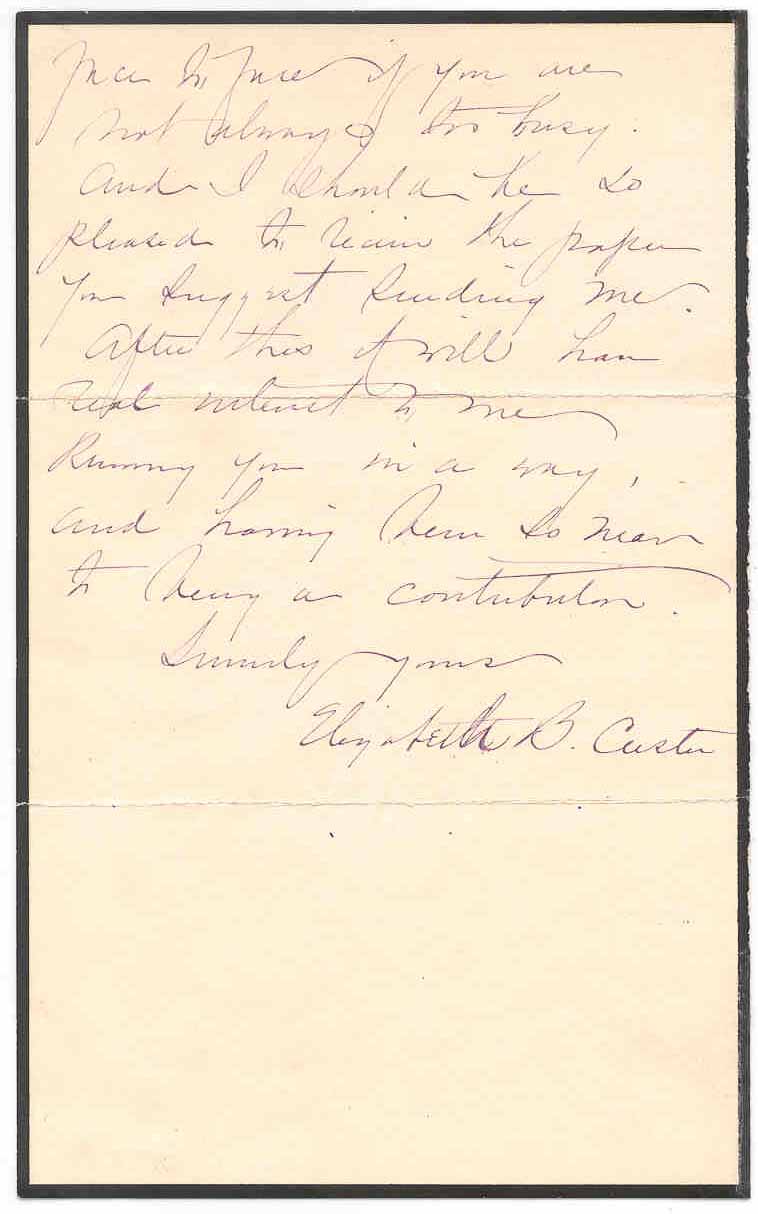 face to face if you are
not always too busy.
And I should be so
pleased to receive the paper
you suggest sending me.
After this it will have
real interest to me
knowing you in a way,
and having been so near
to being a contributor.
Sincerely yours
Elizabeth B. Custer